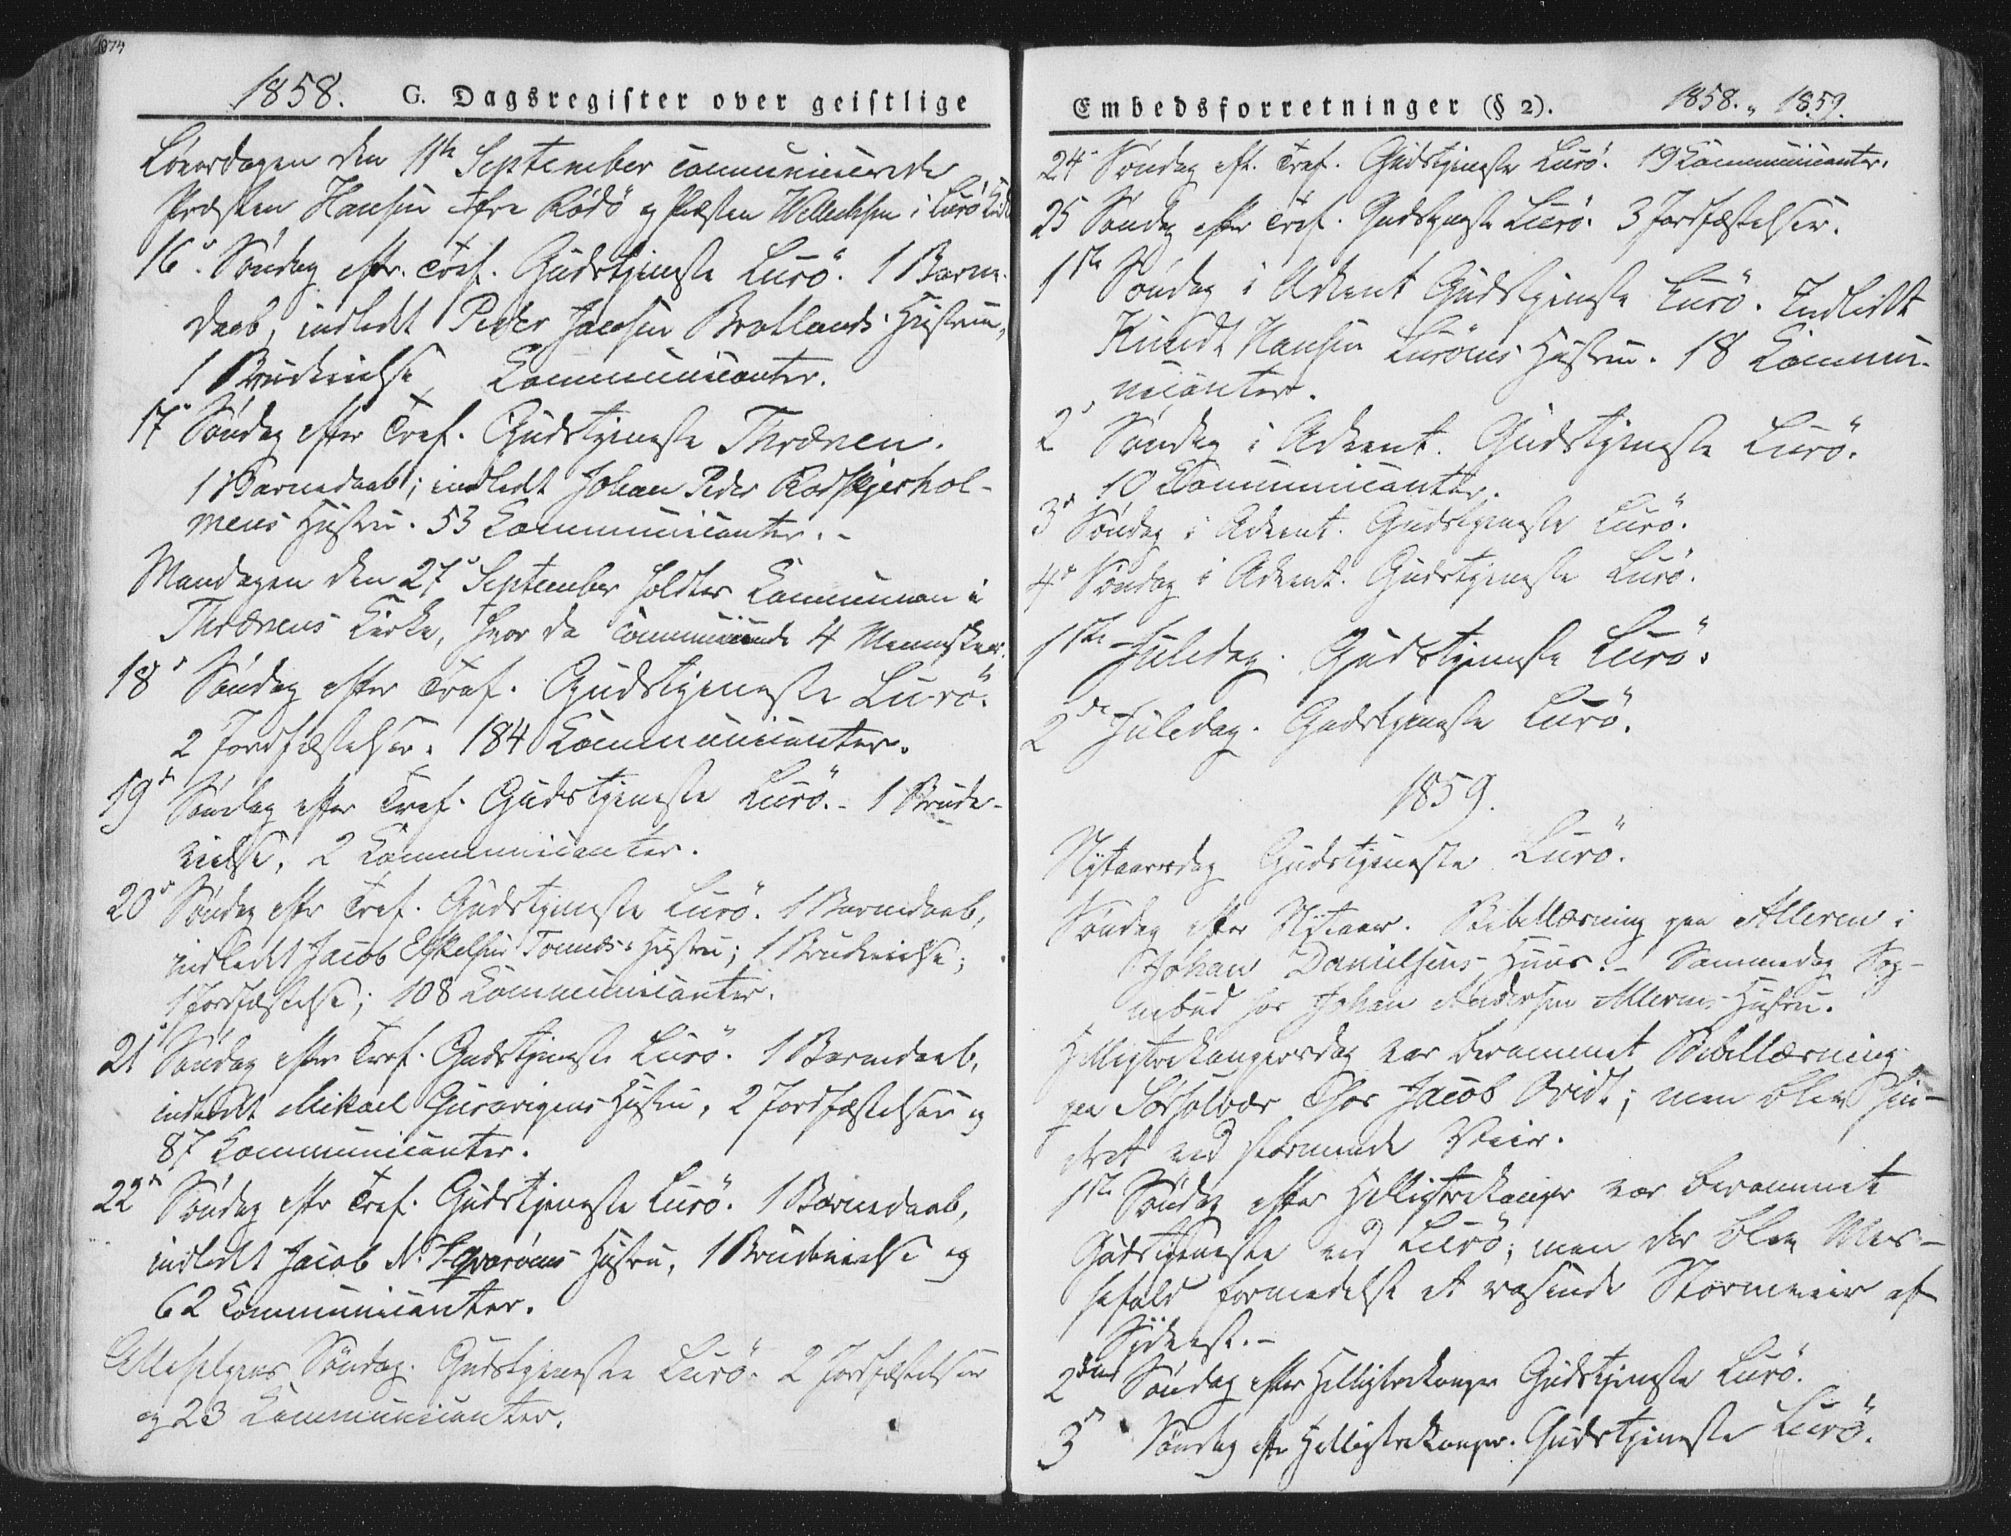 1858. G. Dagsregister over geistlige
Løverdagen den 11te September communicerede
Præsten Hansen fra Rødö og Præsten i Lurö
16de Søndag eftr. Tref. Gudstjeneste Lurö. 1 Barne-
daab, indledt Peder Jacobsen Bratlands Hustru,
1 Brudevielse, Communicanter.
17de Søndag efter Tref. Gudstjeneste Thrænen.
1 Barnedaab; indledt Johan Peder Rødskjerhol-
mens Hustru. 53 Communicanter. -
Mandagen den 27de September holdtes Communion i
Thrænens Kirke, hvor da communicerede 4 Mennesker.
18de Søndag efter Tref. Gudstjeneste Lurö.
2 Jordfæstelser. 184 Communicanter.
19de Søndag efter Tref. Gudstjeneste Lurö. - 1 Brude-
vielse, 2 Communicanter.
20de Søndag eftr Tref. Gudstjeneste Lurö. 1 Barnedaab,
indledt Jacob Hustru; 1 Brudevielse;
1 Jordfæstelse; 108 Communicanter.
21de Søndag efter Tref. Gudstjeneste Lurö. 1 Barnedaab,
indledt Mikael Hustru, 2 Jordfæstelser og
87 Communicanter.
22de Søndag eftr Tref. Gudstjeneste Lurö. 1 Barnedaab,
indledt Jacob N. Hustru, 1 Brudevielse og
62 Communicanter.
Allehelgens Søndag. Gudstjeneste Lurö. 2 Jordfæstelser
og 23 Communicanter.
Embedsforretninger (§ 2). 1858. „ 1859.
24de Søndag eft. Tref. Gudstjeneste Lurö. 19 Communicanter.
25 Søndag efter Tref. Gudstjeneste Lurö. 3 Jordfæstelser.
1ste Søndag i Advent Gudstjeneste Lurö. Indledt
Knudt Hansen Luröens Hustru. 18 Commu-
nicanter.
2de Søndag i Advent. Gudstjeneste Lurö.
10 Communicanter.
3de Søndag i Advent. Gudstjeneste Lurö.
4de Søndag i Advent. Gudstjeneste Lurö.
1ste Juledag. Gudstjeneste Lurö.
2de Juledag. Gudstjeneste Lurö.
1859.
Nytaarsdag Gudstjeneste Lurö.
Søndag efter Nytaar. Bibellæsning paa Alderen i
Johan Danielsens Huus. - Sammedag Sog-
nebud hos Johan Andersen Hustru.
Helligtrekongersdag var berammet Bibellæsning
paa hos Jacob men blev hin-
dret ved stormende Veir.
1ste Søndag efter Helligtrekonger var berammet
Gudstjeneste ved Lurö; men der blev Mes-
sefald formedelst et rasende Stormveir af
Sydvest. -
2den Søndag efter Helligtrekonger Gudstjeneste Lurö.
3de Søndag eftr Helligtrekonger. Gudstjeneste Lurö.